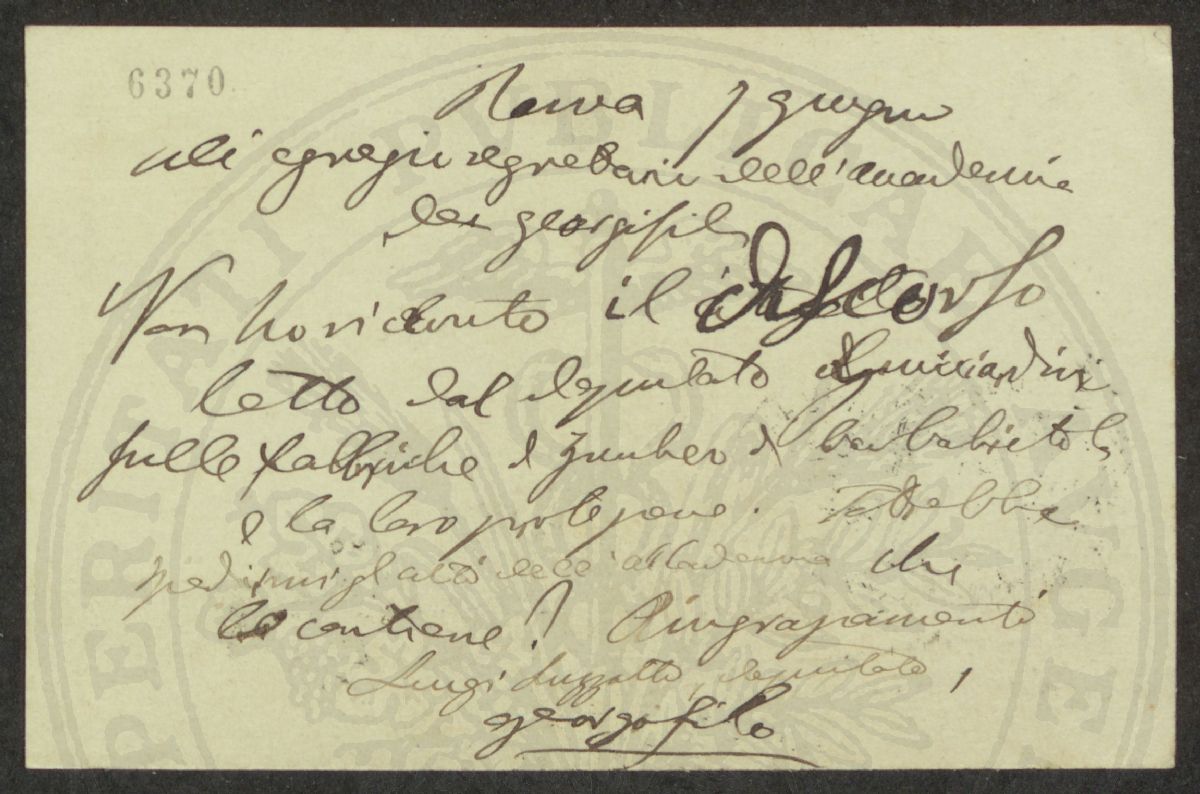 6370
Roma 7 giugno
Ali egregii segretarii dell'accademia
dei georgofili
Non ho ricevuto il discorso
letto dal deputato Guicciardini
sulle fabbriche di zucchero di barbabietola
e la loro protezione. Potrebbe
spedirmi gl'atti dell'accademia che
lo contiene? Ringraziamenti
Luigi Luzzatti, deputato,
georgofilo
PERITATI PVBLICAE